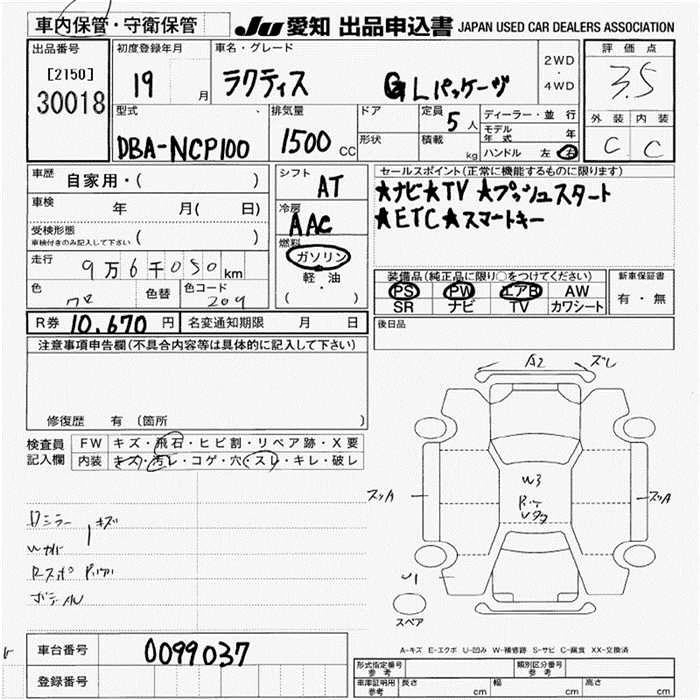 車内保管・守衛保管
JU 愛知 出品申込書 JAPAN USED CAR DEALERS ASSOCIATION
出品番号
[2150]
30018
初度登録年月
19 月
車名・グレード
ラクティス GLパッケージ
2WD
・
4WD
評価点
3.5
外装 内装
C C
型式
DBA-NCP100
排気量
1500 CC
ドア
形状
定員
5 人
積載
kg
ディーラー・並行
モデル年式 年
ハンドル 左 右
車歴 自家用・( )
車検 年 月( 日)
受検形態
車検付きのみ記入して下さい ( )
走行 9万6千050km
色 色替 色コード 209
シフト
AT
冷房
AAC
燃料
ガソリン
・
軽・油
( )
セールスポイント(正常に機能するものに限ります)
★ナビ★TV ★プッシュスタート
★ETC★スマートキー
装備品(純正品に限り○をつけてください)
PS PW エアB AW
SR ナビ TV カワシート
新車保証書
有・無
R券 10,670 円 名変通知期限 月 日
後日品
注意事項申告欄(不具合内容等は具体的に記入して下さい)
修復歴 有 (箇所 )
検査員記入欄
FW キズ・飛石・ヒビ割・リペア跡・X要
内装 キズ・汚レ・コゲ・穴・スレ・キレ・破レ
A2 ズレ
スリA
スリA
W3
U1
スペア
A-キズ E-エクボ U-凹み W-補修跡 S-サビ C-腐食 XX-交換済
車台番号 0099037
登録番号
形式指定番号
参考
類別区分番号
参考
車庫証明用
参考
長さ cm 幅 cm 高さ cm